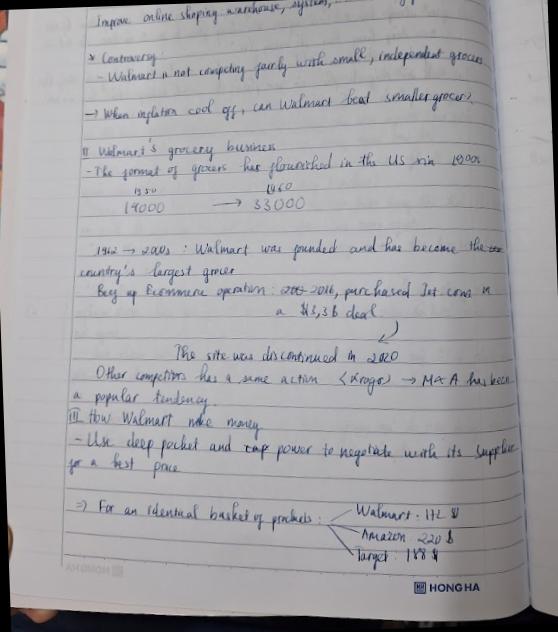 Improve online shoping, warehouse, system,
* Controversy
- Walmart is not competing fairly with small, independent grocers
-> When inflation cool off, can Walmart beat smaller grocer?
II Walmart's grocery business
- The format of grocers has flourished in the US in 1900s
1950 1960
14000 -> 33000
1962 -> 2000s : Walmart was founded and has become the
country's largest grocer
Beef up Ecommerce operation : 2016, purchased Jet.com in
a $3,3B deal
The site was discontinued in 2020
Other competitors has a same action (Kroger) -> M&A has been
a popular tendency
III How Walmart make money
- Use deep pocket and power to negotiate with its supplier
for a best price
=> For an identical basket of products : Walmart :
Amazon 220 $
Target : 188 $
HONG HA
HONG HA